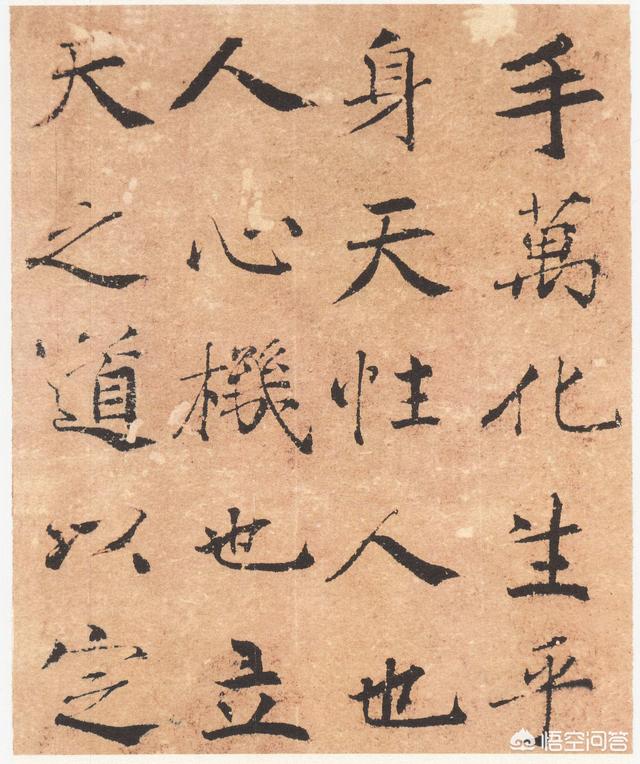 手萬化生乎
身天性人也
人心機也立
天之道以定
悟空问答